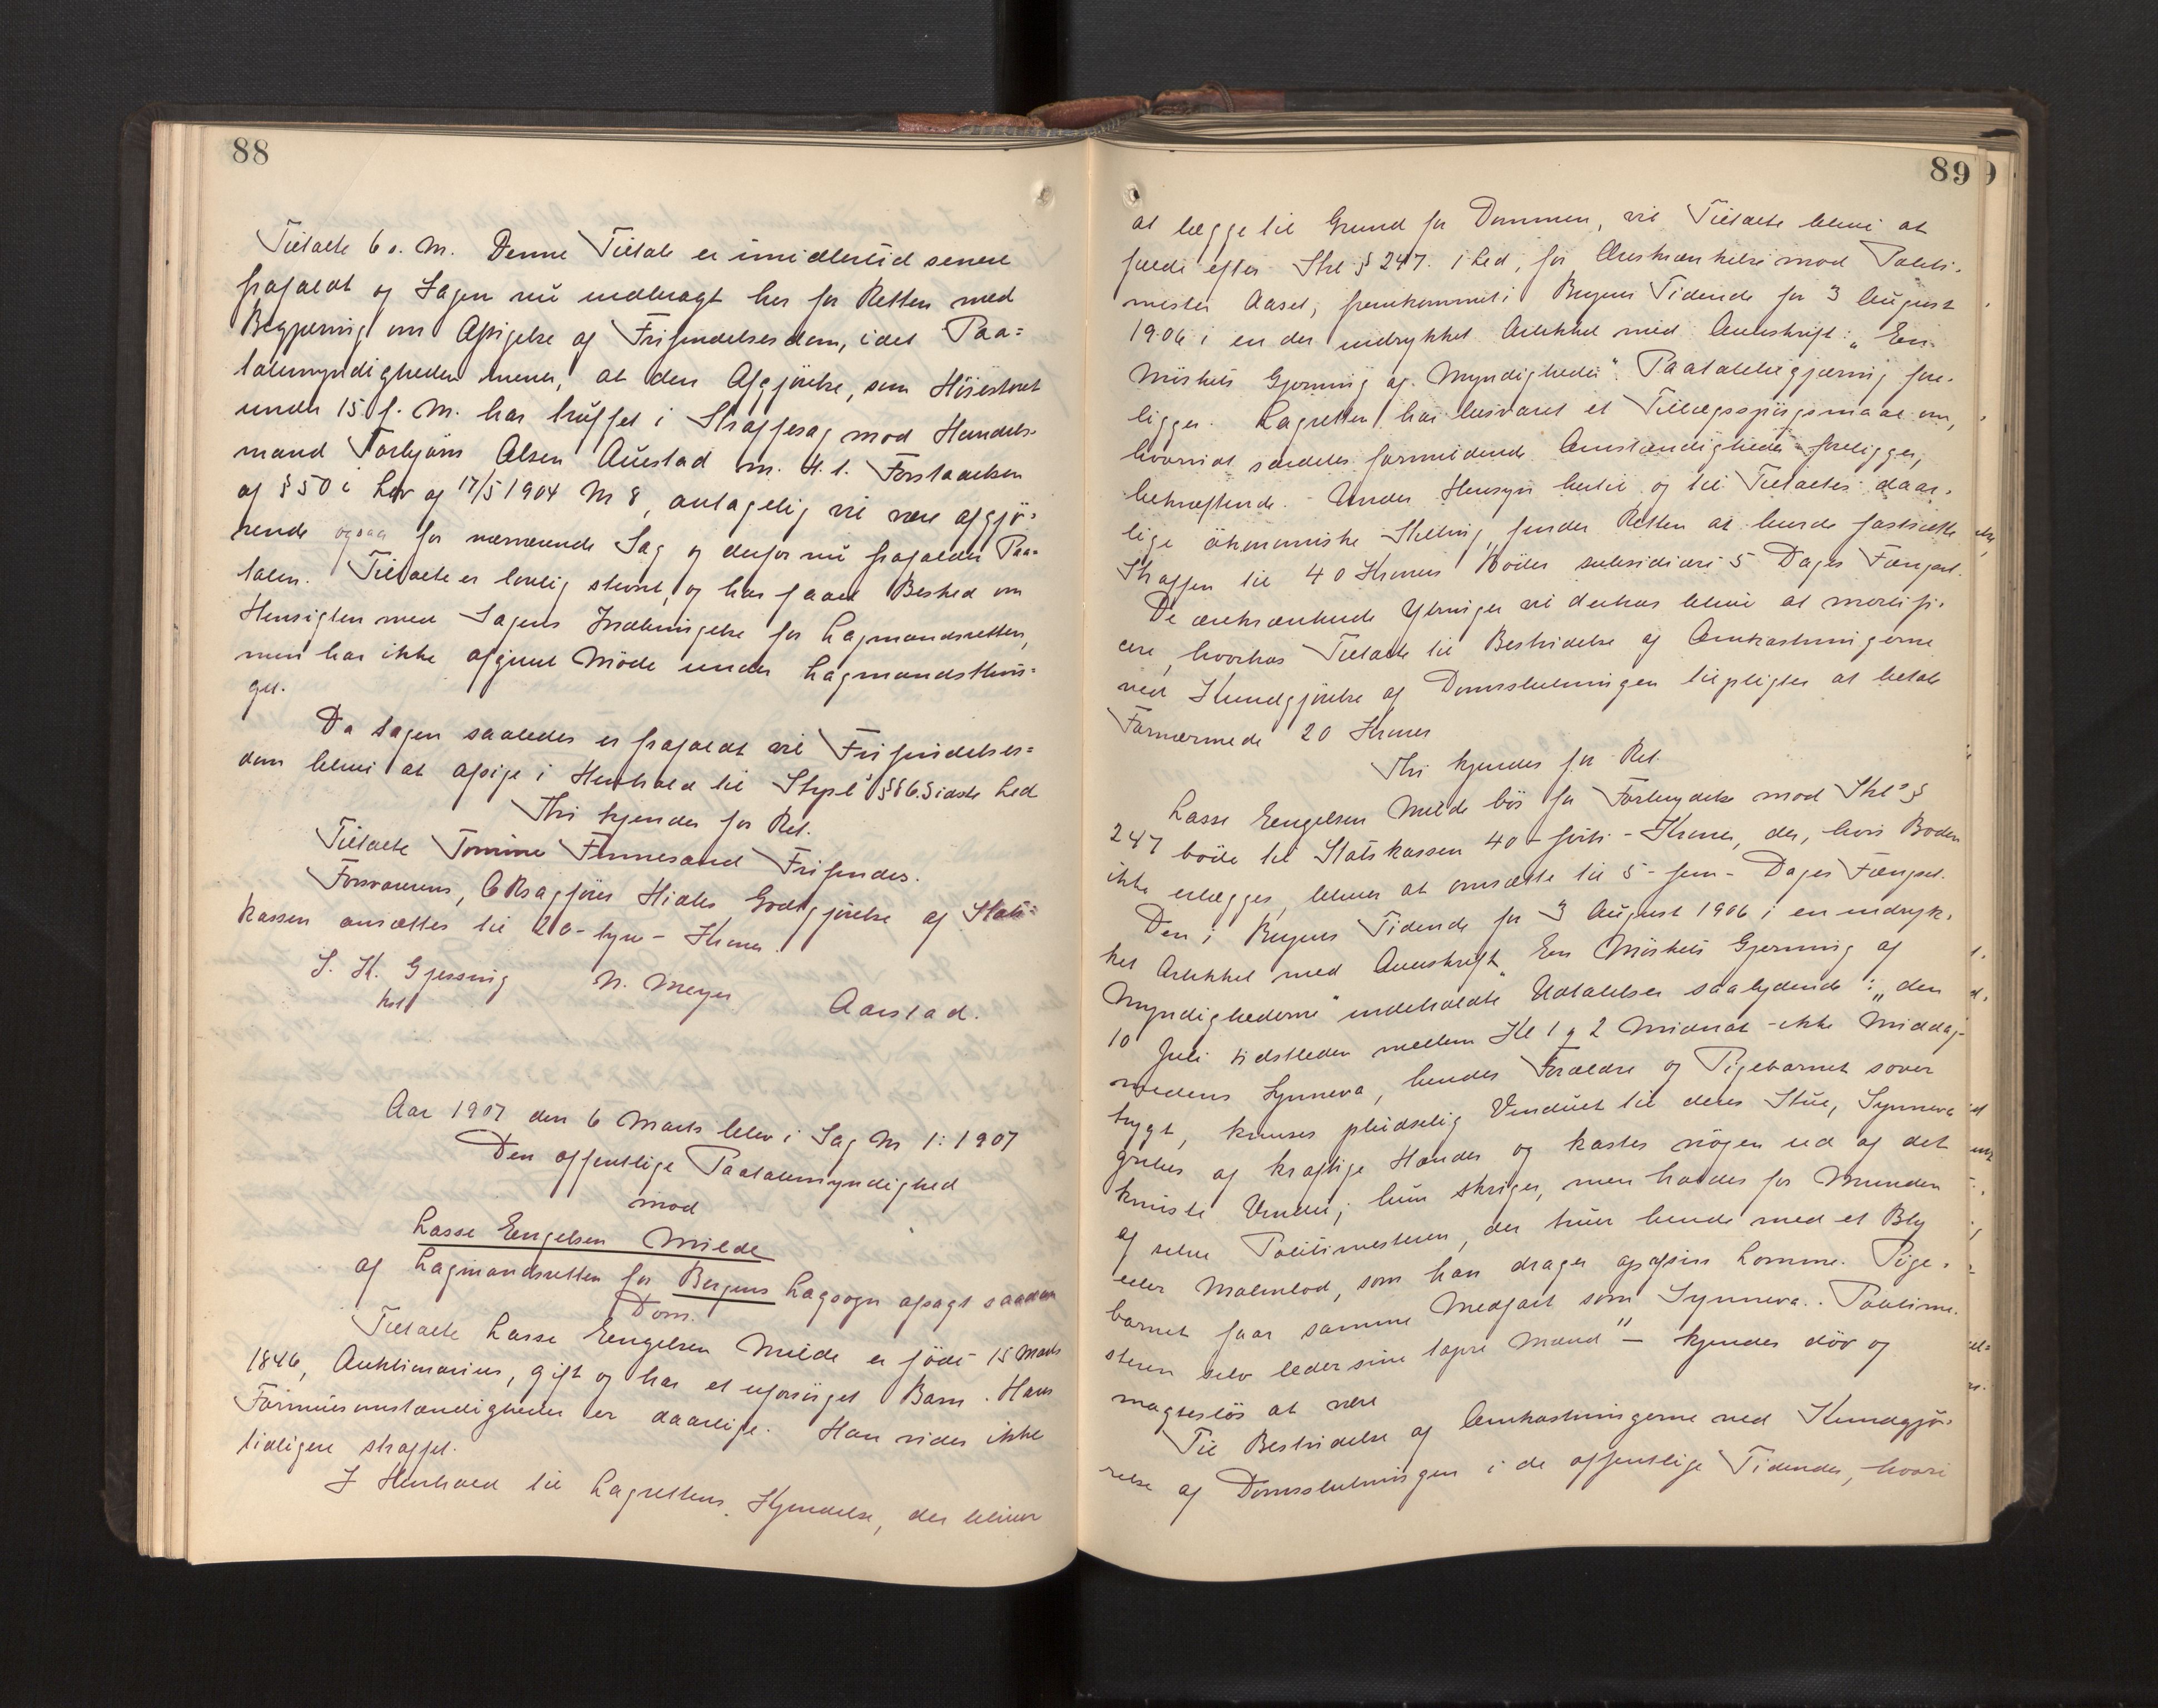 88
Tiltalte 6 s. M. Denne Tiltale er imidlertid senere
frafaldt og Sagen nu indbragt her for Retten med
Begjæring om Afsigelse af Frifindelsesdom, idet Paa=
talemyndigheden mener, at den Afgjörelse, som Höiesteret
under 15 f. M. har truffet i Straffesag mod Handels-
mand Torbjörn Olsen Auestad m. H. t. Forstaaelsen
af § 50 i Lov af 17/5 1904 No 8, antagelig vil være afgjö-
rende ogsaa for nærværende Sag og derfor nu frafalder Paa-
talen. Tiltalte er lovlig stevnt, og har faaet Besked om
Hensigten med Sagens Indbringelse for Lagmandsretten,
men har ikke afgivet Möde under Lagmandsthin-
get.
Da Sagen saaledes er frafaldt vil Frifindelses=
dom blive at afsige i Henhold til Strpl's § 86 sidste Led
Thi kjendes for Ret.
Tiltalte Tomine Finnesand Frifindes.
Forsvareren, O Rsagförer Godtgjörelse af Stats=
kassen ansættes til 20 - tyve - Kroner.
S. K. Gjessing N. Meyer Aarstad.
kst
Aar 1907 den 6 Marts blev i Sag No 1: 1907
Den offentlige Paatalemyndighed
mod
Lasse Engelsen Milde
af Lagmandsretten for Bergens Lagsogn afsagt saadan
Dom.
Tiltalte Lasse Engelsen Milde er födt 15 Marts
1846, Auktionarius, gift og har et uforsörget Barn. Hans
Formuesomstændigheder er daarlige. Han vides ikke
tidligere straffet.
I Henhold til Lagrettens Kjendelse, der bliver
89
at lægge til Grund for Dommen, vil Tiltalte blive at
fælde efter Strl § 247. 1 Led, for Ærekrænkelse mod Politi-
mester Aasel, fremkommet i Bergens Tidende for 3 August
1906 i en der indrykket Artikkel med Overskrift: "En
Mörkets Gjerning af Myndigheder". Paatalebegjæring fore-
ligger. Lagretten har besvaret et Tillægsspörgsmaal om,
hvorvidt særdeles formildende Omstændigheder foreligger,
bekræftende. Under Hensyn hertil og til Tiltaltes daar-
lige ökonomiske Stilling, finder Retten at burde fastsætte
Straffen til 40 Kroners Böder subsidiært 5 Dages Fængsel.
De ærekrænkende Ytringer vil derhos blive at mortifi-
cere, hvorhos Tiltalte til Bestridelse af Omkostningerne
ved Kundgjörelse af Domsslutningen tilpligtes at betale
Fornærmede 20 Kroner
Thi kjendes for Ret.
Lasse Engelsen Milde bör for Forbrydelse mod Strl's §
247 böde til Statskassen 40 - förti - Kroner, der, hvis Boden
ikke erlægges, bliver at omsætte til 5 - fem - Dages Fængsel.
Den i Bergens Tidende for 3 August 1906 i en indryk-
ket Artikkel med Overskrift "En Mörkets Gjerning af
Myndighederne" indeholdte Udtalelser saalydende: "den
10 Juli sidstleden mellem Kl 1 og 2 Midnat - ikke Middag -
medens Synneva, hendes Forældre og Pigebarnet sover
trygt, knuses pludselig Vinduet til deres Stue, Synneva
gribes af kraftige Hænder og kastes nögen ud af det
knuste Vindu; hun skriger, men holdes for Munden
af selve Politimesteren, der truer hende med et Bly
eller Malmlod, som han drager op af sin Lomme. Pige-
barnet faar samme Medfart som Synneva. Politime-
steren selv leder sine tapre Mænd" - kjendes döv og
magteslös at være
Til Bestridelse af Omkostningerne ved Kundgjö-
relse af Domsslutningen i de offentlige Tidender, hvori